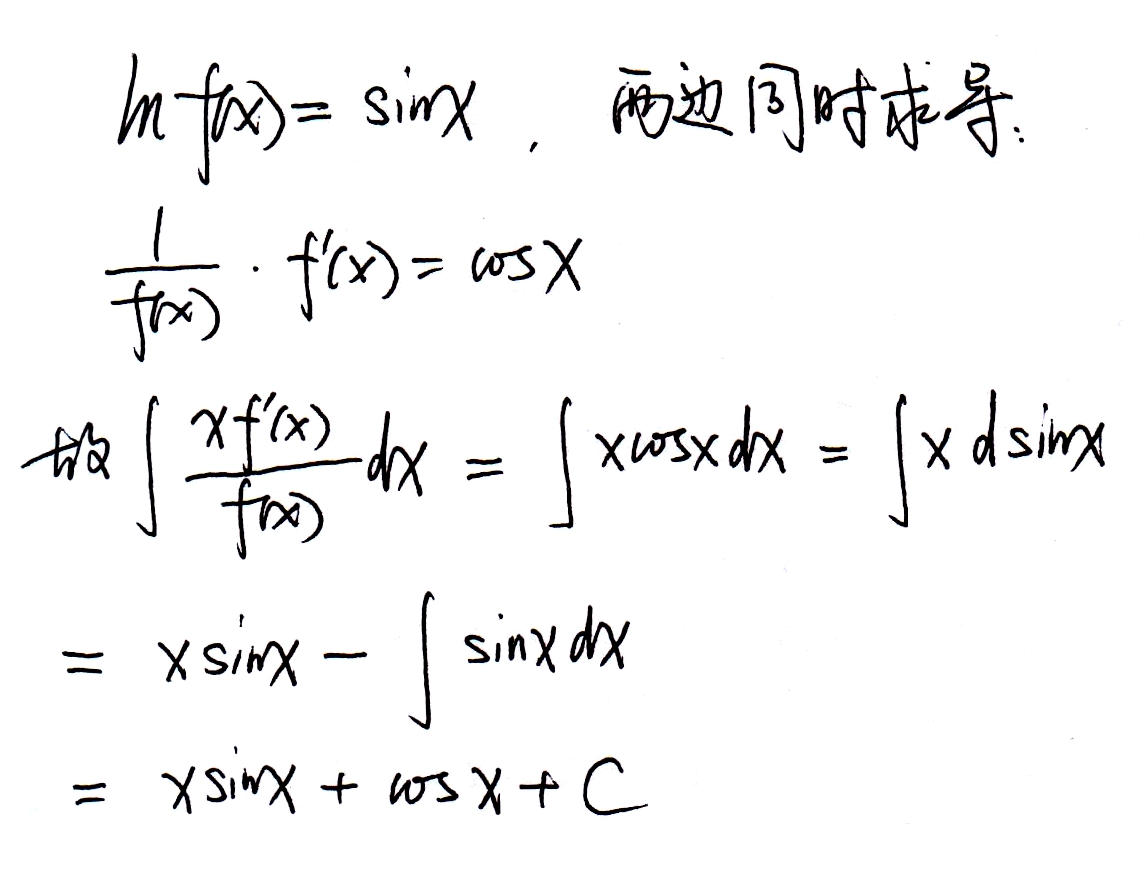 ln f(x) = sinx , 两边同时求导:
1/f(x) · f'(x) = cosx
故 ∫ xf'(x)/f(x) dx = ∫ xcosxdx = ∫ x d sinx
= x sinx - ∫ sinx dx
= x sinx + cosx + C